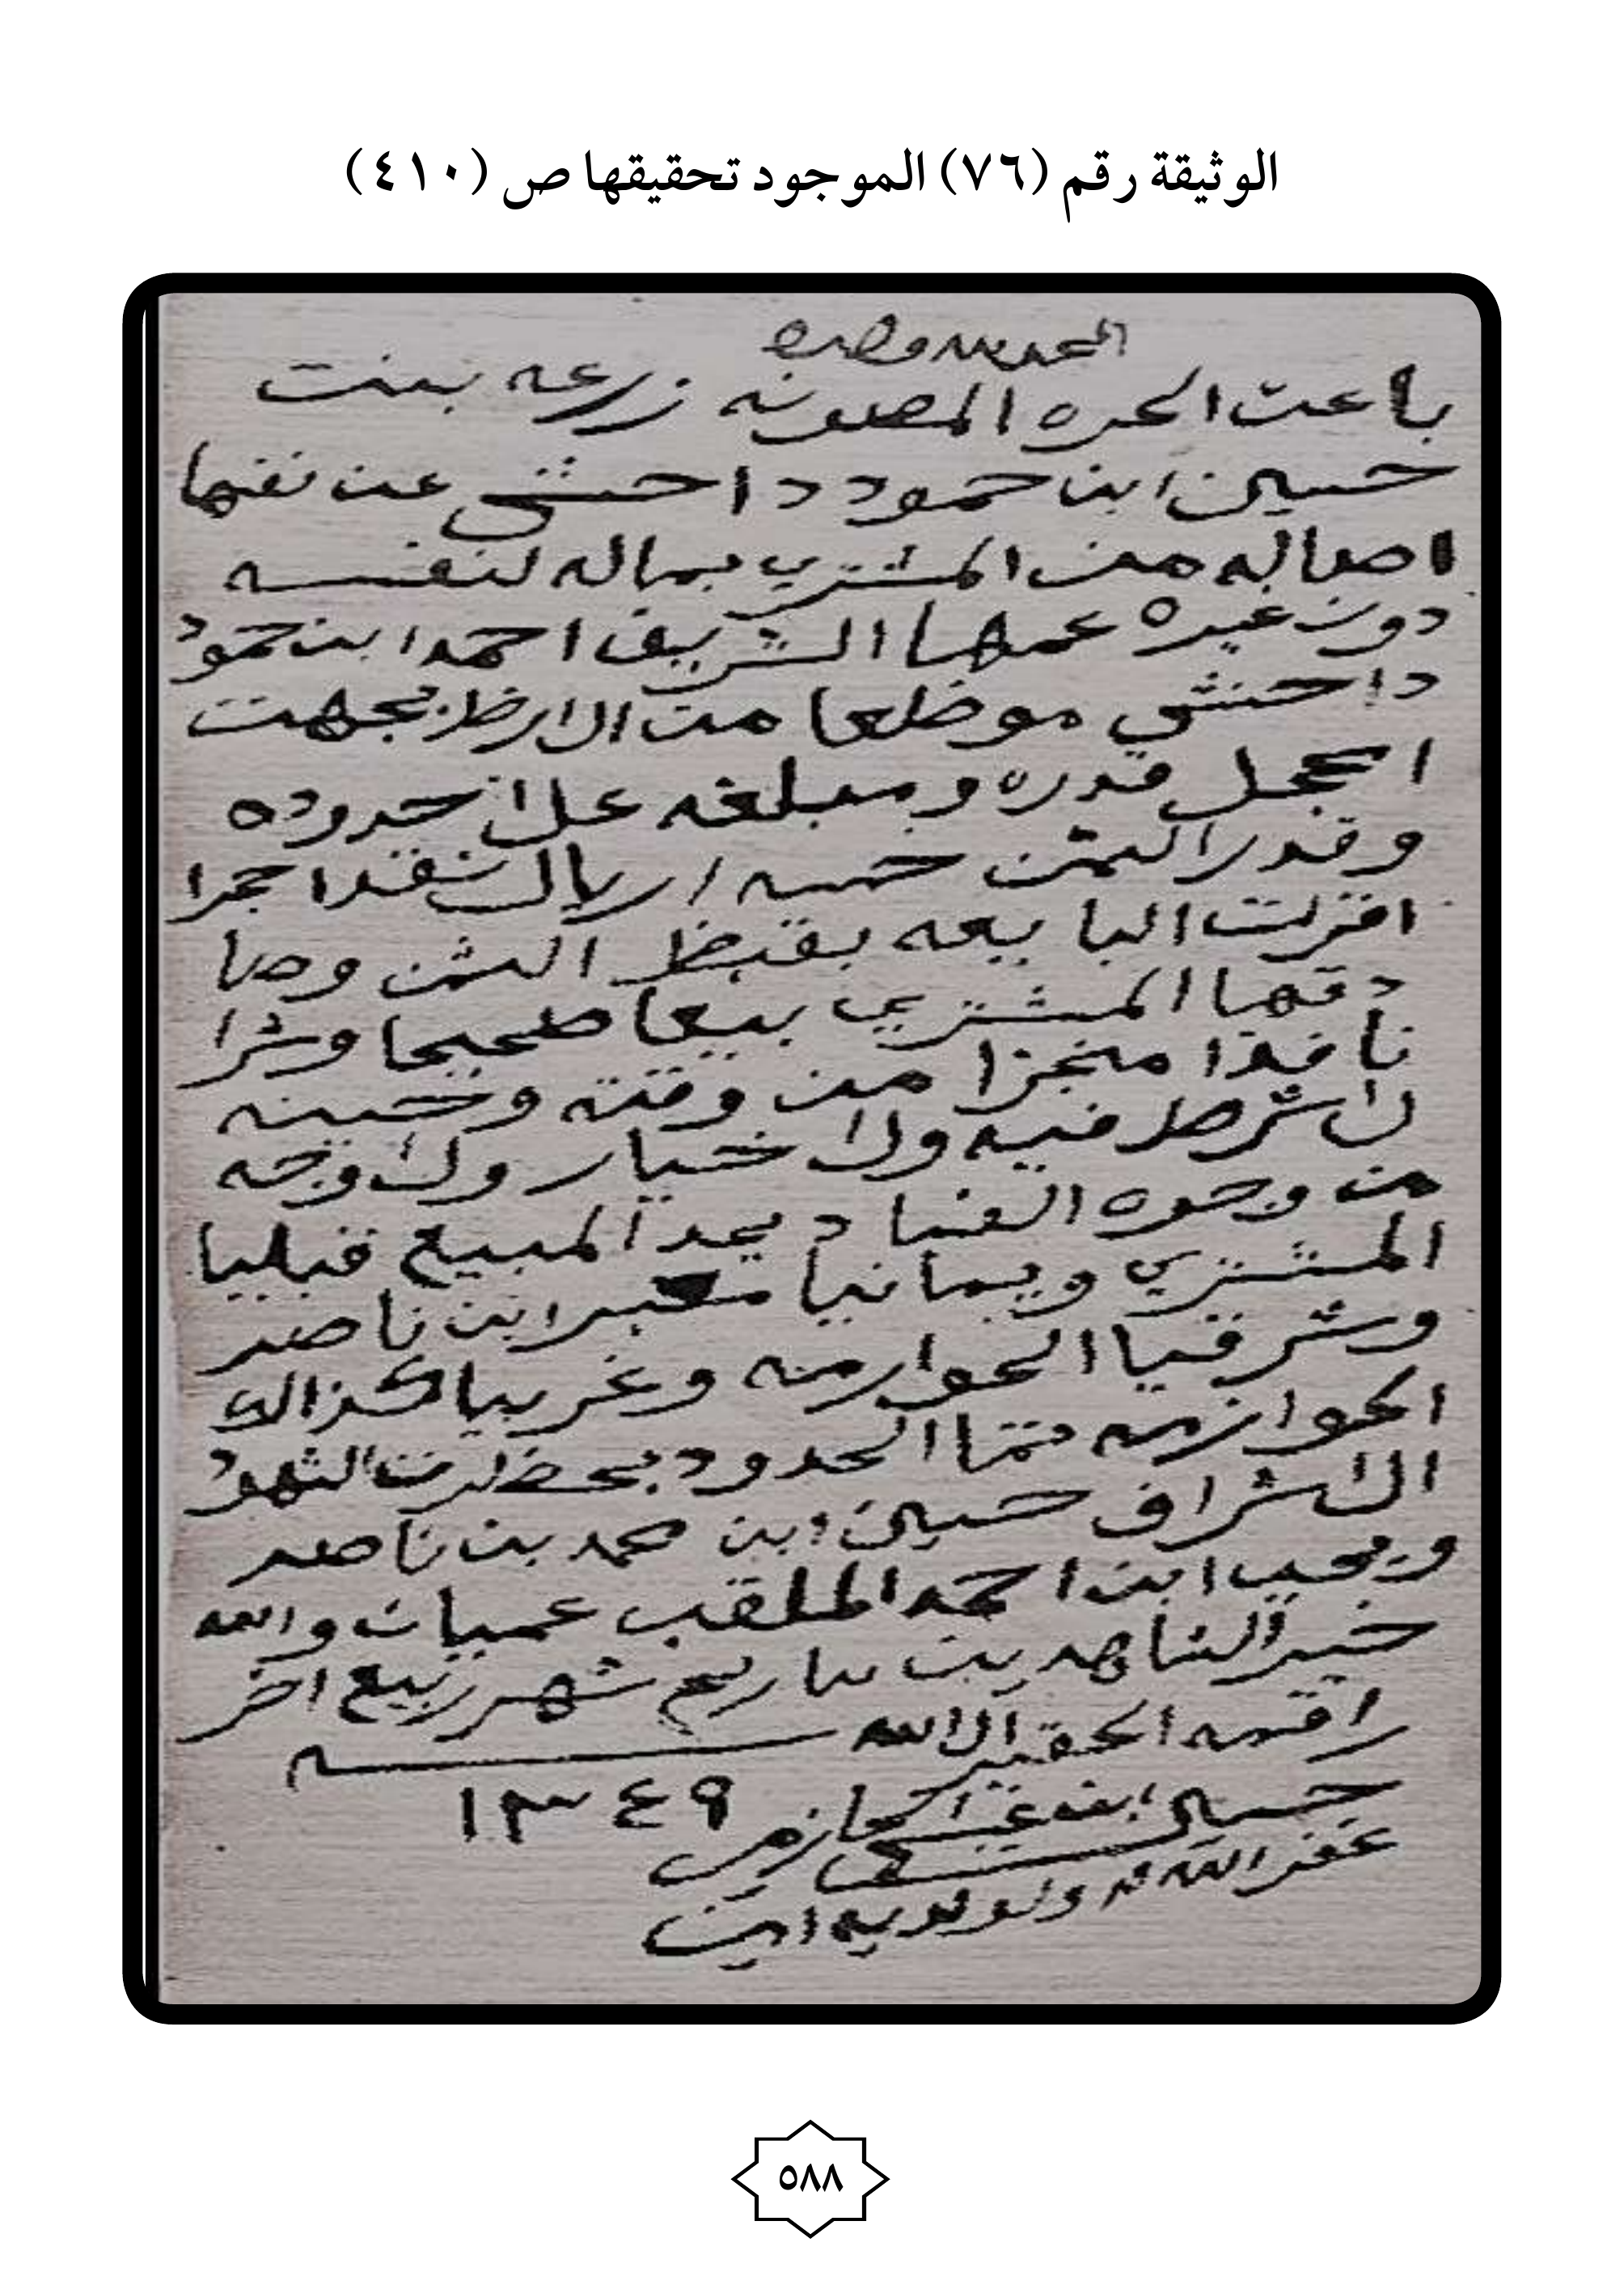 الوثيقة رقم (٧٦) الموجود تحقيقها ص (٤١٠)
الحمد لله وحده
باعت الحره المصونه زرعه بنت
حسين ابن حمود داحش عن نفسها
اصاله من المشتري بماله لنفسه
دون غيره عمها الشريف احمد ابن حمود
داحش موظعا من الارظ بجهت
الحجل قدره ومبلغه علا حدوده
وقدر الثمن خمسه اريال نقدا حجرا
اقرت البايعه بقبظ الثمن وصا
دقها المشتري بيعا صحيحا وشرا
نافذا منجزا من وقته وحينه
لا شرط فيه ولا خيار ولا وجه
من وجوه الفساد يحد المبيع قبليا
المشتري ويمانيا معبر ابن ناصر
وشرقيا الحوازمه وغربيا كذالك
الحوازمه تمتا الحدود بحظرت الشهود
الاشراف حسين ابن محمد بن ناصر
ويحيى ابن احمد الملقب عميان والله
خير الشاهدين تاريخ شهر ربيع اخر
راقمه الحقير الا الله سنه
١٣٤٩
حسين ابن الحازمي
غفر الله له ولوالديه امين
٥٨٨